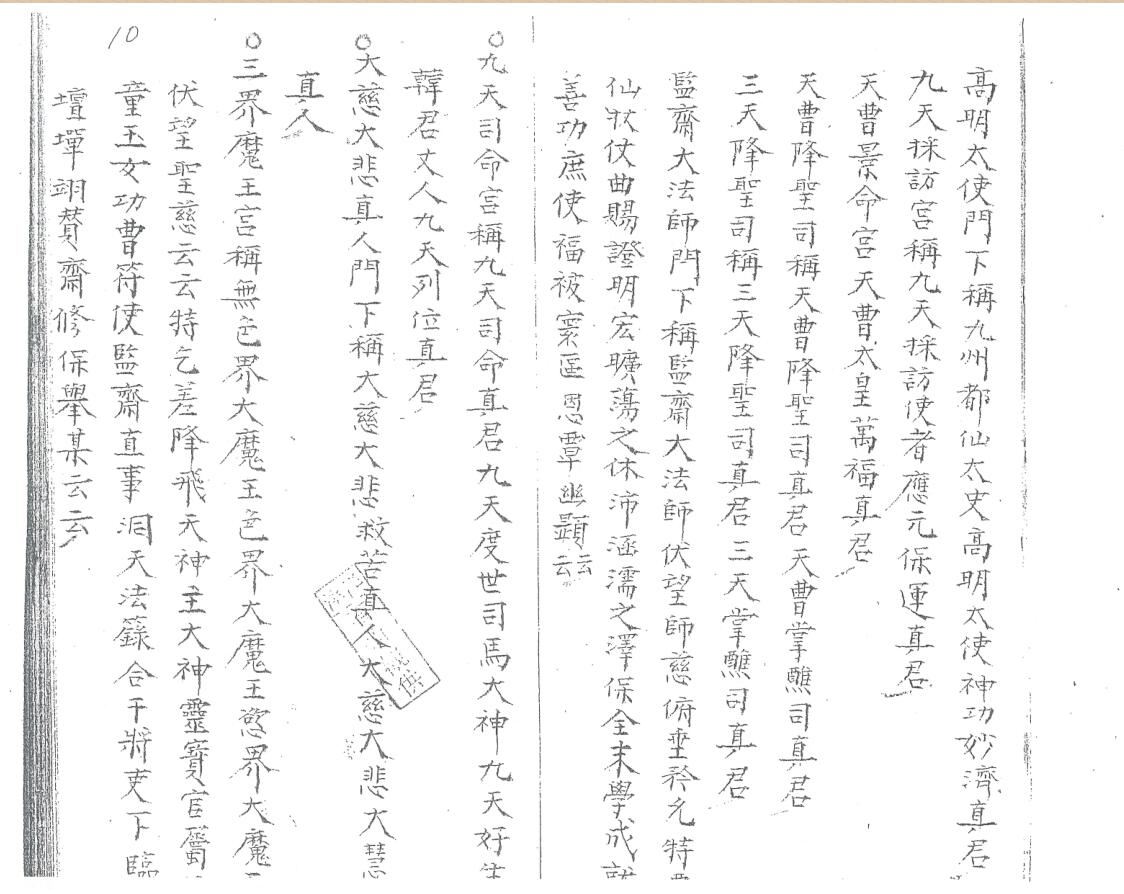 高明太使門下稱九州都仙太史高明太使神功妙濟真君
九天採訪宮稱九天採訪使者應元保運真君
天曹景命宮天曹太皇萬福真君
天曹降聖司稱天曹降聖司真君天曹掌醮司真君
三天降聖司稱三天降聖司真君三天掌醮司真君
監齋大法師門下稱監齋大法師伏望師慈俯垂矜允特
仙狀仗曲賜證明宏曠蕩之休沛涵濡之澤保全末學成就
善功庶使福被寰區恩覃幽顯云云
○九天司命宮稱九天司命真君九天度世司馬大神九天好生
韓君丈人九天列位真君
○大慈大悲真人門下稱大慈大悲救苦真人大慈大悲大慧
真人
○三界魔王宮稱無色界大魔王色界大魔王慾界大魔王
伏望聖慈云云特乞差降飛天神王大神靈寶官屬
童玉女功曹符使監齋直事洞天法籙合干將吏下臨
壇墠翊贊齋修保舉某云云
10